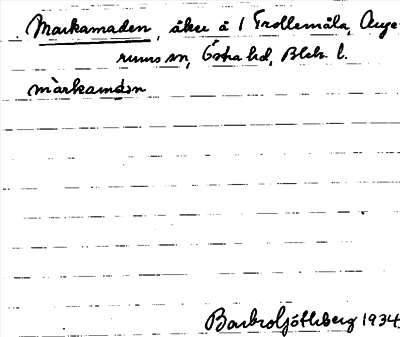 Markamaden, åker å 1 Trollemåla, Auge-
rums sn, Östra hd, Blek. l.
màrkamáən
Barbro Götlberg 1934.